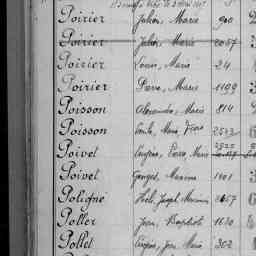 Poirier Julien, Marie 900
Poirier Julien Marie 2057
Poirier Louis, Marie 24
Poirier Pierre, Marie 1199
Poisson Alexandre, Marie 814
Poisson Marie, 2543
2525
Poivet Eugène, Pierre Marie
Poivet Georges, Maxime 1101
Poligne Joseph, 1657
Poller Jean, Baptiste 1630
Pollet Eugène, Jean, Marie 302